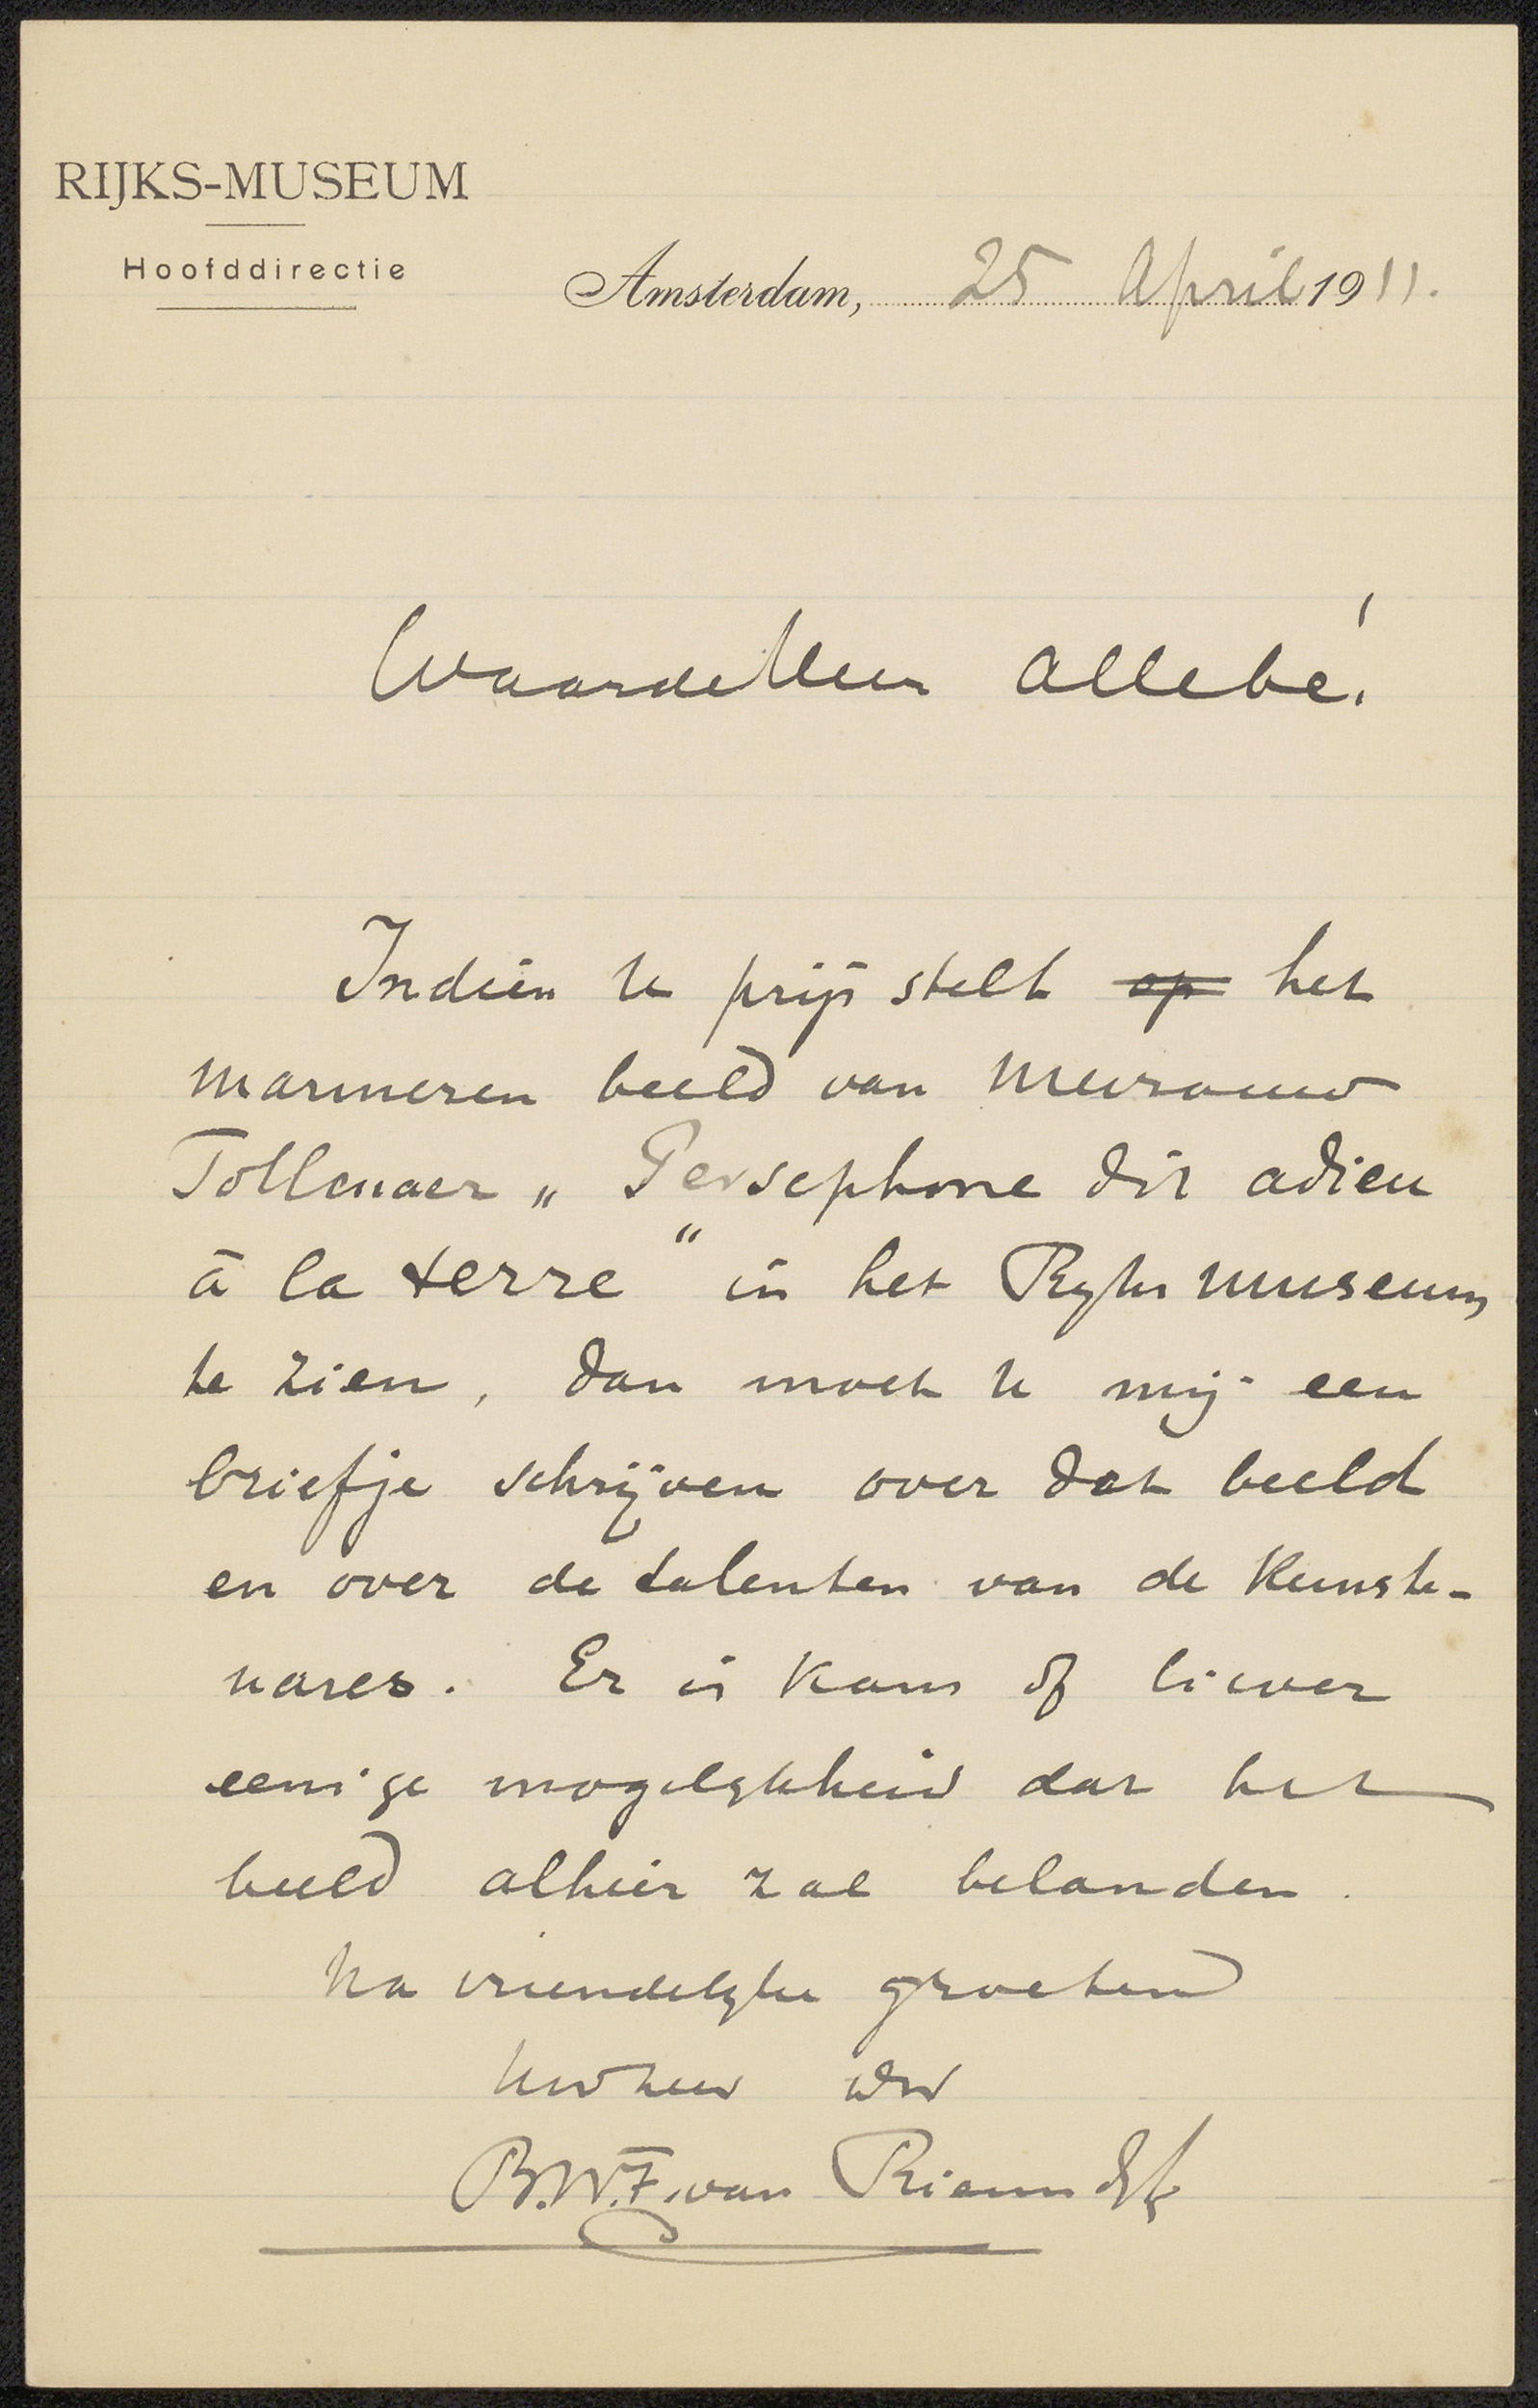 RIJKS-MUSEUM
Hoofddirectie
Amsterdam, 25 April 1911.
Waarde Heer Allebé!
Indien U prijs stelt op het
marmeren beeld van Mevrouw
Tollenaer „Persephone dit adieu
à la terre" in het Ryksmuseum
te zien, dan moet U mij een
briefje schrijven over dat beeld
en over de talenten van de Kunste-
nares. Er is kans of liever
eenige mogelykheid dat het
beeld alhier zal belanden.
Na vriendelyke groetend
B.W.F. van Riemsdyk